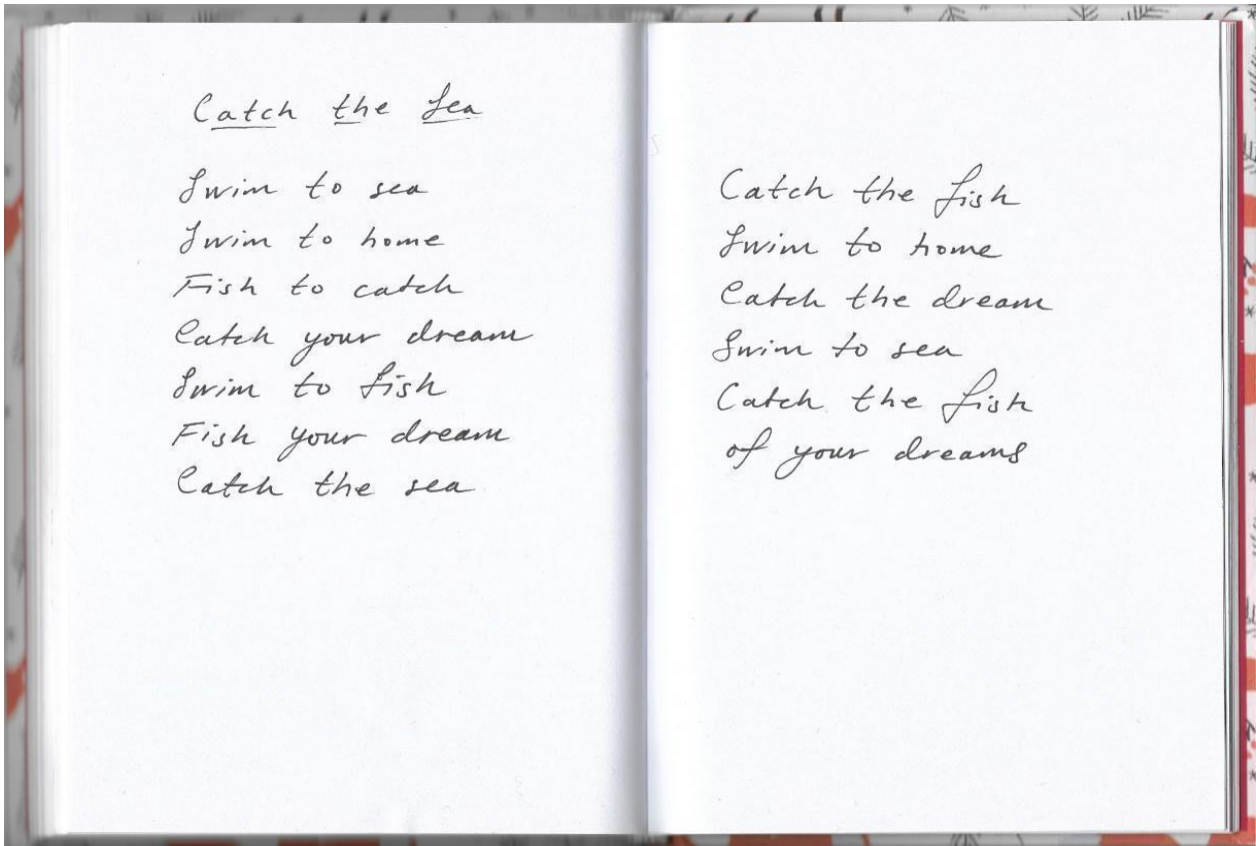 Catch the Sea
Swim to sea
Swim to home
Fish to catch
Catch your dream
Swim to fish
Fish your dream
Catch the sea
Catch the fish
Swim to home
Catch the dream
Swim to sea
Catch the fish
of your dreams